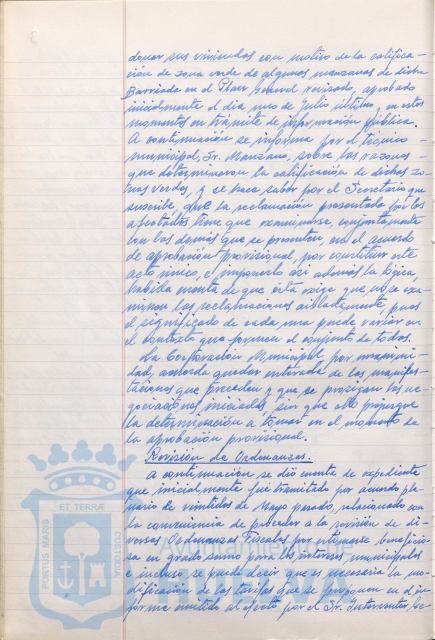 donar sus viviendas con motivo de la califica-
ción de zona verde de algunas manzanas de dicha
Barriada en el Plan General revisado, aprobado
inicialmente el día uno de Julio último, en estos
momentos en trámite de información pública.
A continuación se informa por el técnico
municipal, Sr. Manzano, sobre las razones
que determinaron la calificación de dichas zo-
nas verdes, y se hace saber por el Secretario que
suscribe, que la reclamación presentada por los
afectados tiene que examinarse, conjuntamente
con las demás que se presenten, en el acuerdo
de aprobación provisional, por constituir este
acto único, e imponerlo así además la lógica,
habida cuenta de que ésta exige que no se exa-
minen las reclamaciones aisladamente, pues
el significado de cada una puede variar en
el contexto que formen el conjunto de todas.
La Corporación Municipal por unanimi-
dad, acuerda quedar enterada de las manifes-
taciones que preceden y que se prosigan las ne-
gociaciones iniciadas, sin que ello prejuzgue
la determinación a tomar en el momento de
la aprobación provisional.
Revisión de Ordenanzas.
A continuación se dió cuenta de expediente
que inicialmente fué tramitado por acuerdo ple-
nario de veintidos de Mayo pasado, relacionado con
la conveniencia de proceder a la revisión de di-
versas Ordenanzas Fiscales por estimarse beneficio-
sa en grado sumo para los intereses municipales
e incluso se puede decir que es necesaria la mo-
dificación de las tarifas que se proponen en el in-
forme emitido al efecto por el Sr. Interventor, 
PORTUS MARIS ET TERRÆ CUSTODIA